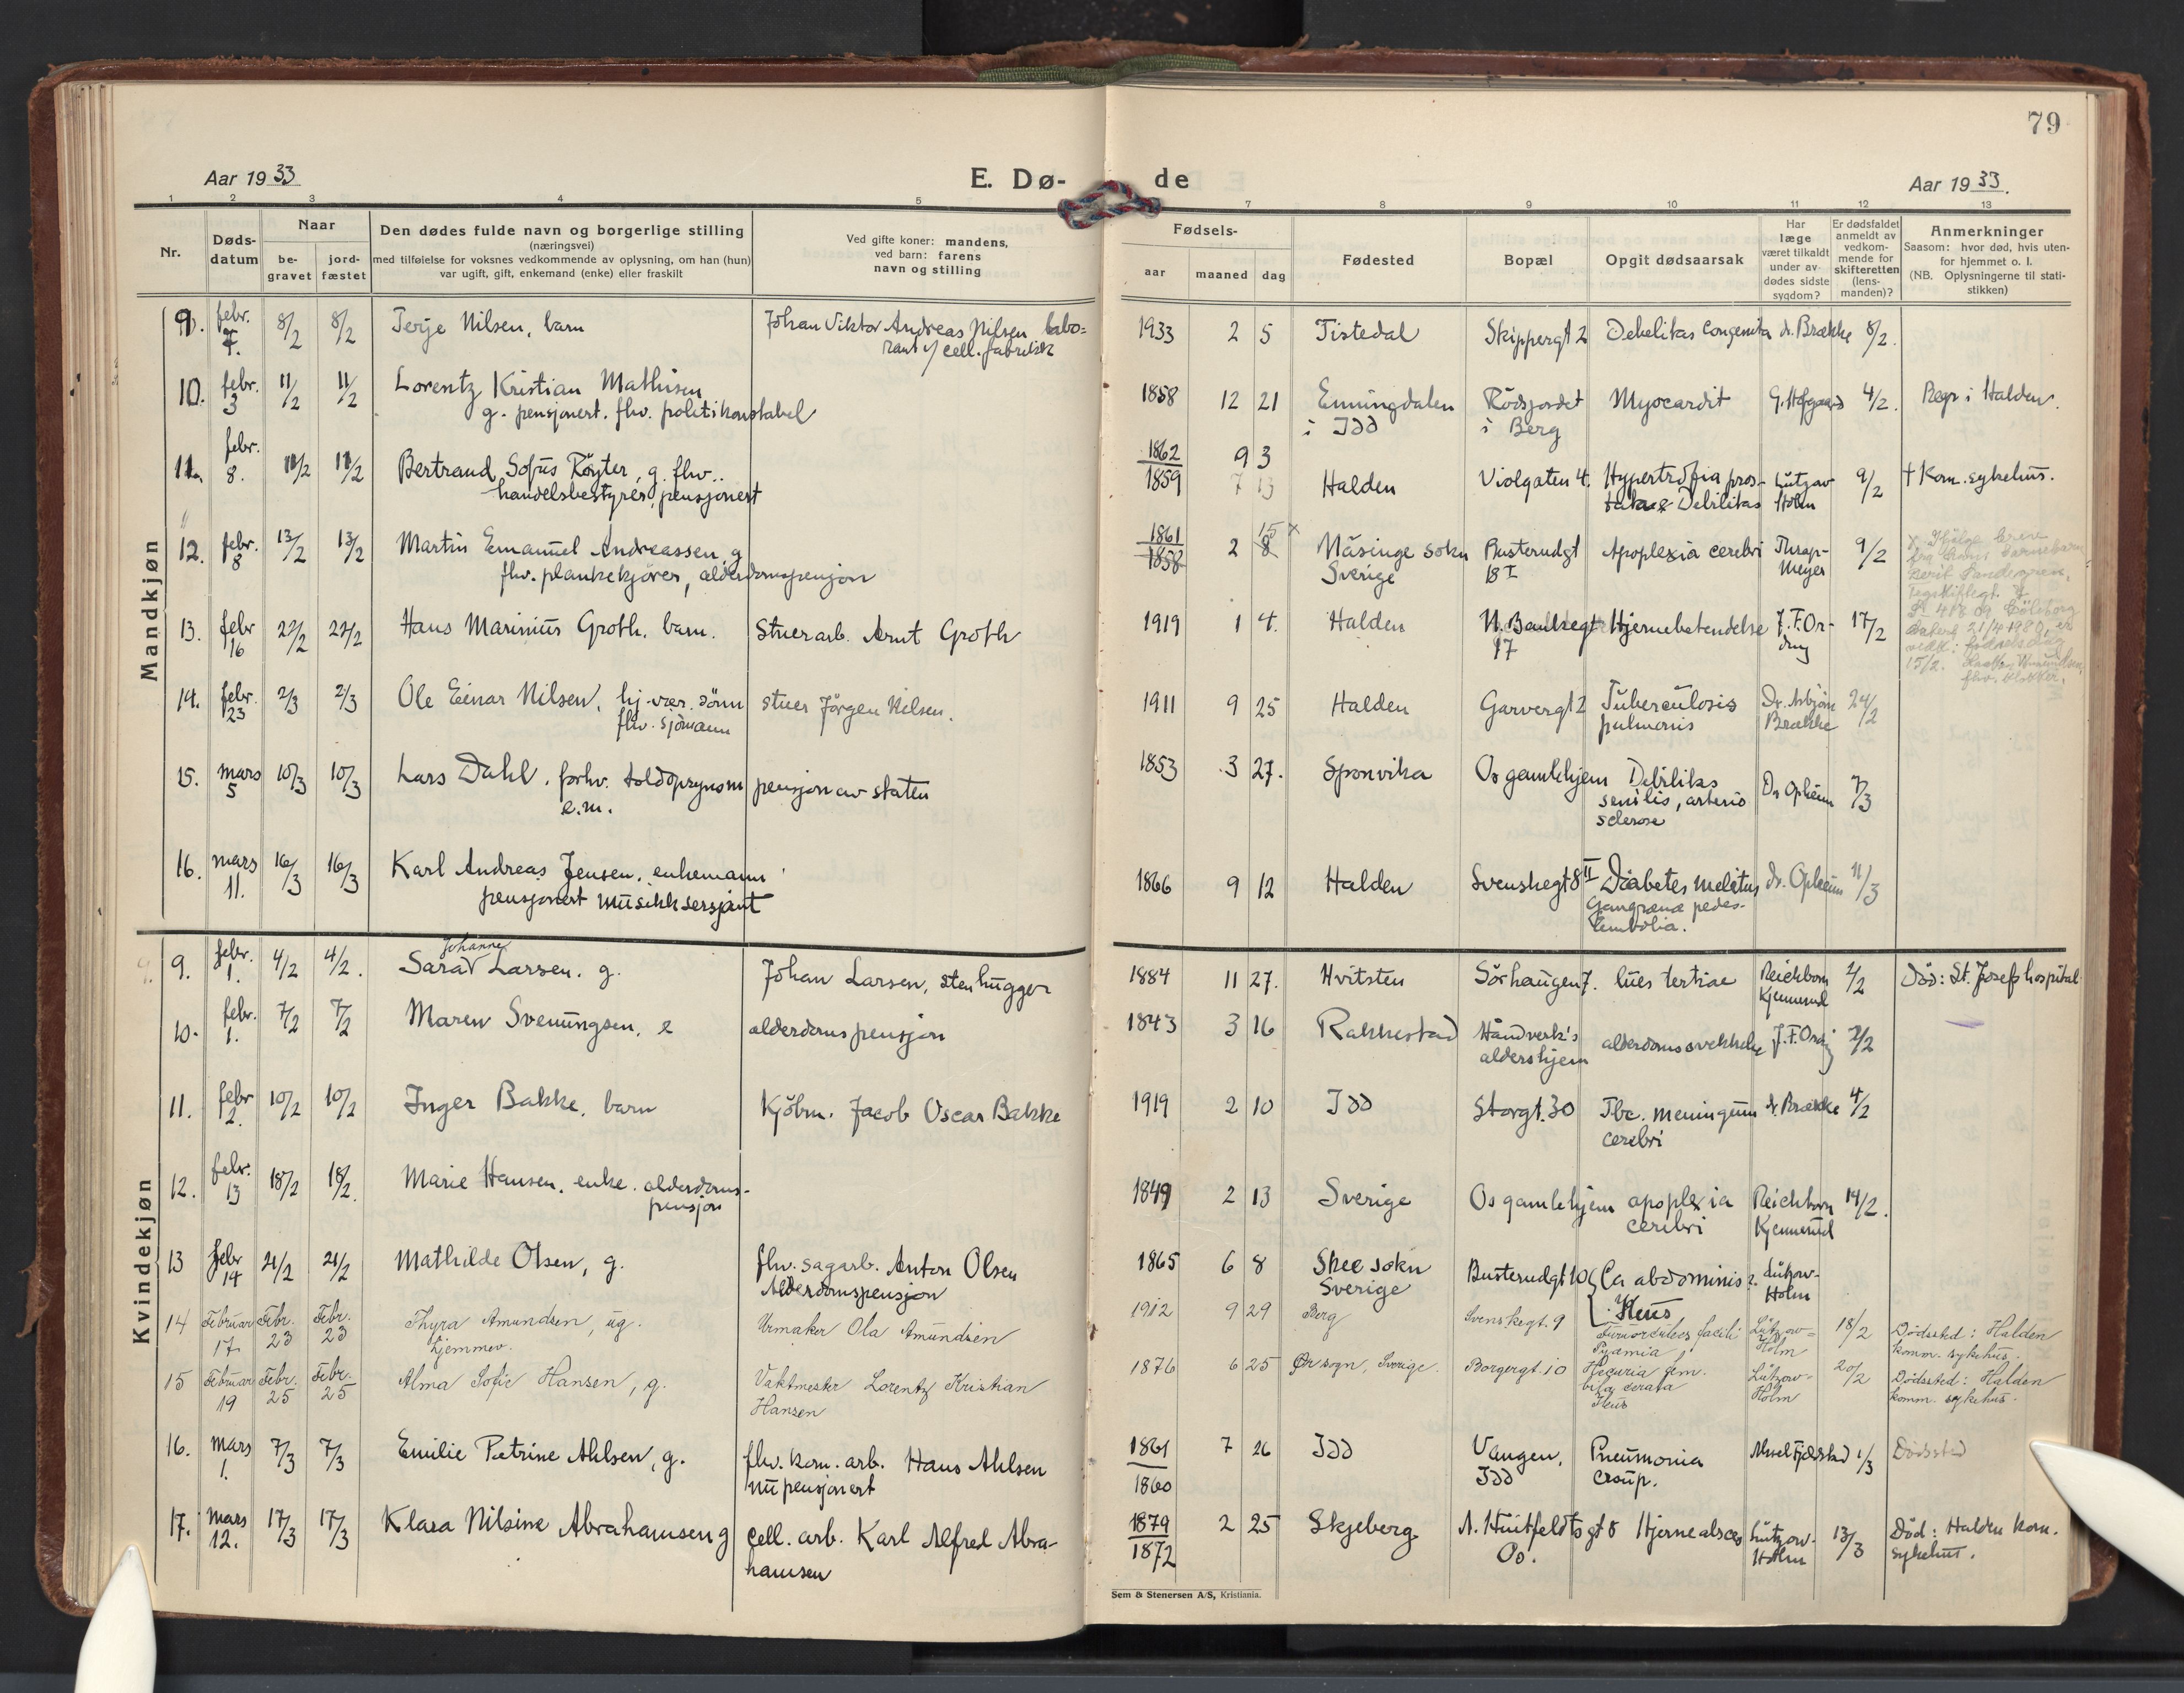 79
Aar 1933
E. Dø-
de
Aar 1933.
1 2 3 4 5
7 8 9 10 11 12 13
Nr.
Døds-
datum
Naar
be-
gravet
jord-
fæstet
Den dødes fulde navn og borgerlige stilling
(næringsvei)
med tilføielse for voksnes vedkommende av oplysning, om han (hun)
var ugift, gift, enkemand (enke) eller fraskilt
Ved gifte koner: mandens,
ved barn: farens
navn og stilling
Fødsels-
aar maaned dag
Fødested
Bopæl
Opgit dødsaarsak
Har
læge
været tilkaldt
under av-
dødes sidste
sygdom?
Er dødsfaldet
anmeldt av
vedkom-
mende for
skifteretten
(lens-
manden)?
Anmerkninger
Saasom: hvor død, hvis uten-
for hjemmet o. l.
(NB. Oplysningerne til stati-
stikken)
Mandkjøn
9. febr. 7. 8/2 8/2 Terje Nilsen, barn Johan Viktor Andreas Nilsen, labo-
rant v/ cell. fabrikk
1933 2 5 Tistedal Skippergt 2 Debelitas congenita dr. Brække 8/2.
10. febr. 3 11/2 11/2 Lorentz Kristian Mathisen
g. pensjonert. fhv. politikonstabel
1858 12 21 Enningdalen
i Idd
Rödsjordet
i Berg
Myocardit 4/2. Begr i Halden.
11. febr. 8. 11/2 11/2 Bertrand Sofus Röyter, g. fhv.
handelsbestyrer, pensjonert
1862 9 3
1859 7 13 Halden Violgaten 4. Hypertrofia pros-
tatae Debilitas
Lützow
Holm
9/2 † Kom. sykehus.
12. febr. 8 13/2 13/2 Martin Emanuel Andreassen, g
fhv. plankekjörer, alderdomspensjon
1861 15 x
1858 2 8 Näsinge sokn
Sverige
Busterudgt
18 I
Apoplexia cerebri Thrap-
Meyer
9/2
13. febr 16 22/2 22/2 Hans Marinius Groth, barn. Stuerarb. Arnt Groth
1919 1 4. Halden N. Bankegt
17
Hjernebetendelse J. F. Or-
ding
17/2
x Ifølge brev
15/2.
14. febr. 23 2/3 2/3 Ole Einar Nilsen, hj. vær. sönn
fhv. sjömann
stuer Jörgen Nilsen.
1911 9 25 Halden Garvergt 2 Tuberculosis
pulmonis
Dr. Asbjörn
Brække
24/2
15. mars 5 10/3 10/3 Lars Dahl, forhv. toldopsynsm
e.m.
pensjon av staten
1853 3 27. Sponvika Os gamlehjem Debilitas
senilis, arterio
sclerose
Dr Opheim 7/3
16. mars 11. 16/3 16/3 Karl Andreas Jensen, enkemann
pensjonert musikksersjant
1866 9 12 Halden Svenskegt 8 II Diabetes melitus
Gangræna pedes-
Embolia.
dr. Opheim 11/3
Kvindekjøn
9. febr. 1. 4/2 4/2. Johanne
Sara Larsen. g. Johan Larsen, stenhugger
1884 11 27. Hvitsten Sörhaugen 7. lues tertiae Reichborn
Kjennerud
2/2 Död: St. Josefs hospital
10. febr. 1. 7/2 7/2 Maren Svenungsen, e alderdomspensjon
1843 3 16 Rakkestad Håndverk's
aldershjem
alderdomssvekkelse J. F. Ording 2/2
11. febr 2. 10/2 10/2 Inger Bakke, barn Kjöbm. Jacob Oscar Bakke
1919 2 10 Idd Storgt. 30 Tbc. meningeum
cerebri
dr. Brække 4/2
12. febr. 13 18/2 18/2. Marie Hansen, enke. alderdoms-
pensjon
1849 2 13 Sverige Os gamlehjem apoplexia
cerebri
Reichborn
Kjennerud
14/2.
13 febr 14 21/2 21/2 Mathilde Olsen, g. fhv. sagarb. Anton Olsen
Alderdomspensjon
1865 6 8 Skee sokn
Sverige
Busterudgt 10 Ca abdominis?
Ileus
Lützow-
Holm
14 Februar 17. Febr. 23 Febr. 23 Thyra Amundsen, ug.
hjemmev.
Urmaker Ola Amundsen
1912 9 29 Berg Svenskegt. 9 Furunculus faciei
Pyämia
Lützow-
Holm
18/2 Dödssted: Halden
komm. sykehus.
15 Februar 19 Febr. 25 Febr. 25 Alma Sofie Hansen, g. Vaktmester Lorentz Kristian
Hansen
1876 6 25 Ør sogn, Sverige. Borgergt. 10
Ileus
Lützow-
Holm
20/2 Dödssted: Halden
komm. sykehus.
16. mars 1. 7/3 7/3 Emilie Petrine Ahlsen, g. fhv. kom. arb. Hans Ahlsen
nu pensjonert
1861 7 26
1860
Idd Vangen,
Idd
Pneumonia
croup.
Aksel Fjeldstad 1/3 Dödssted
17. mars 12. 17/3 17/3 Klara Nilsine Abrahamsen g cell. arb. Karl Alfred Abra-
hamsen
1879 2 25
1872
Skjeberg A. Huitfeldtsgt 8
Os.
Hjerneabsces Lützow-
Holm
13/3 Död: Halden kom.
sykehus.
Sem & Stenersen A/S, Kristiania.